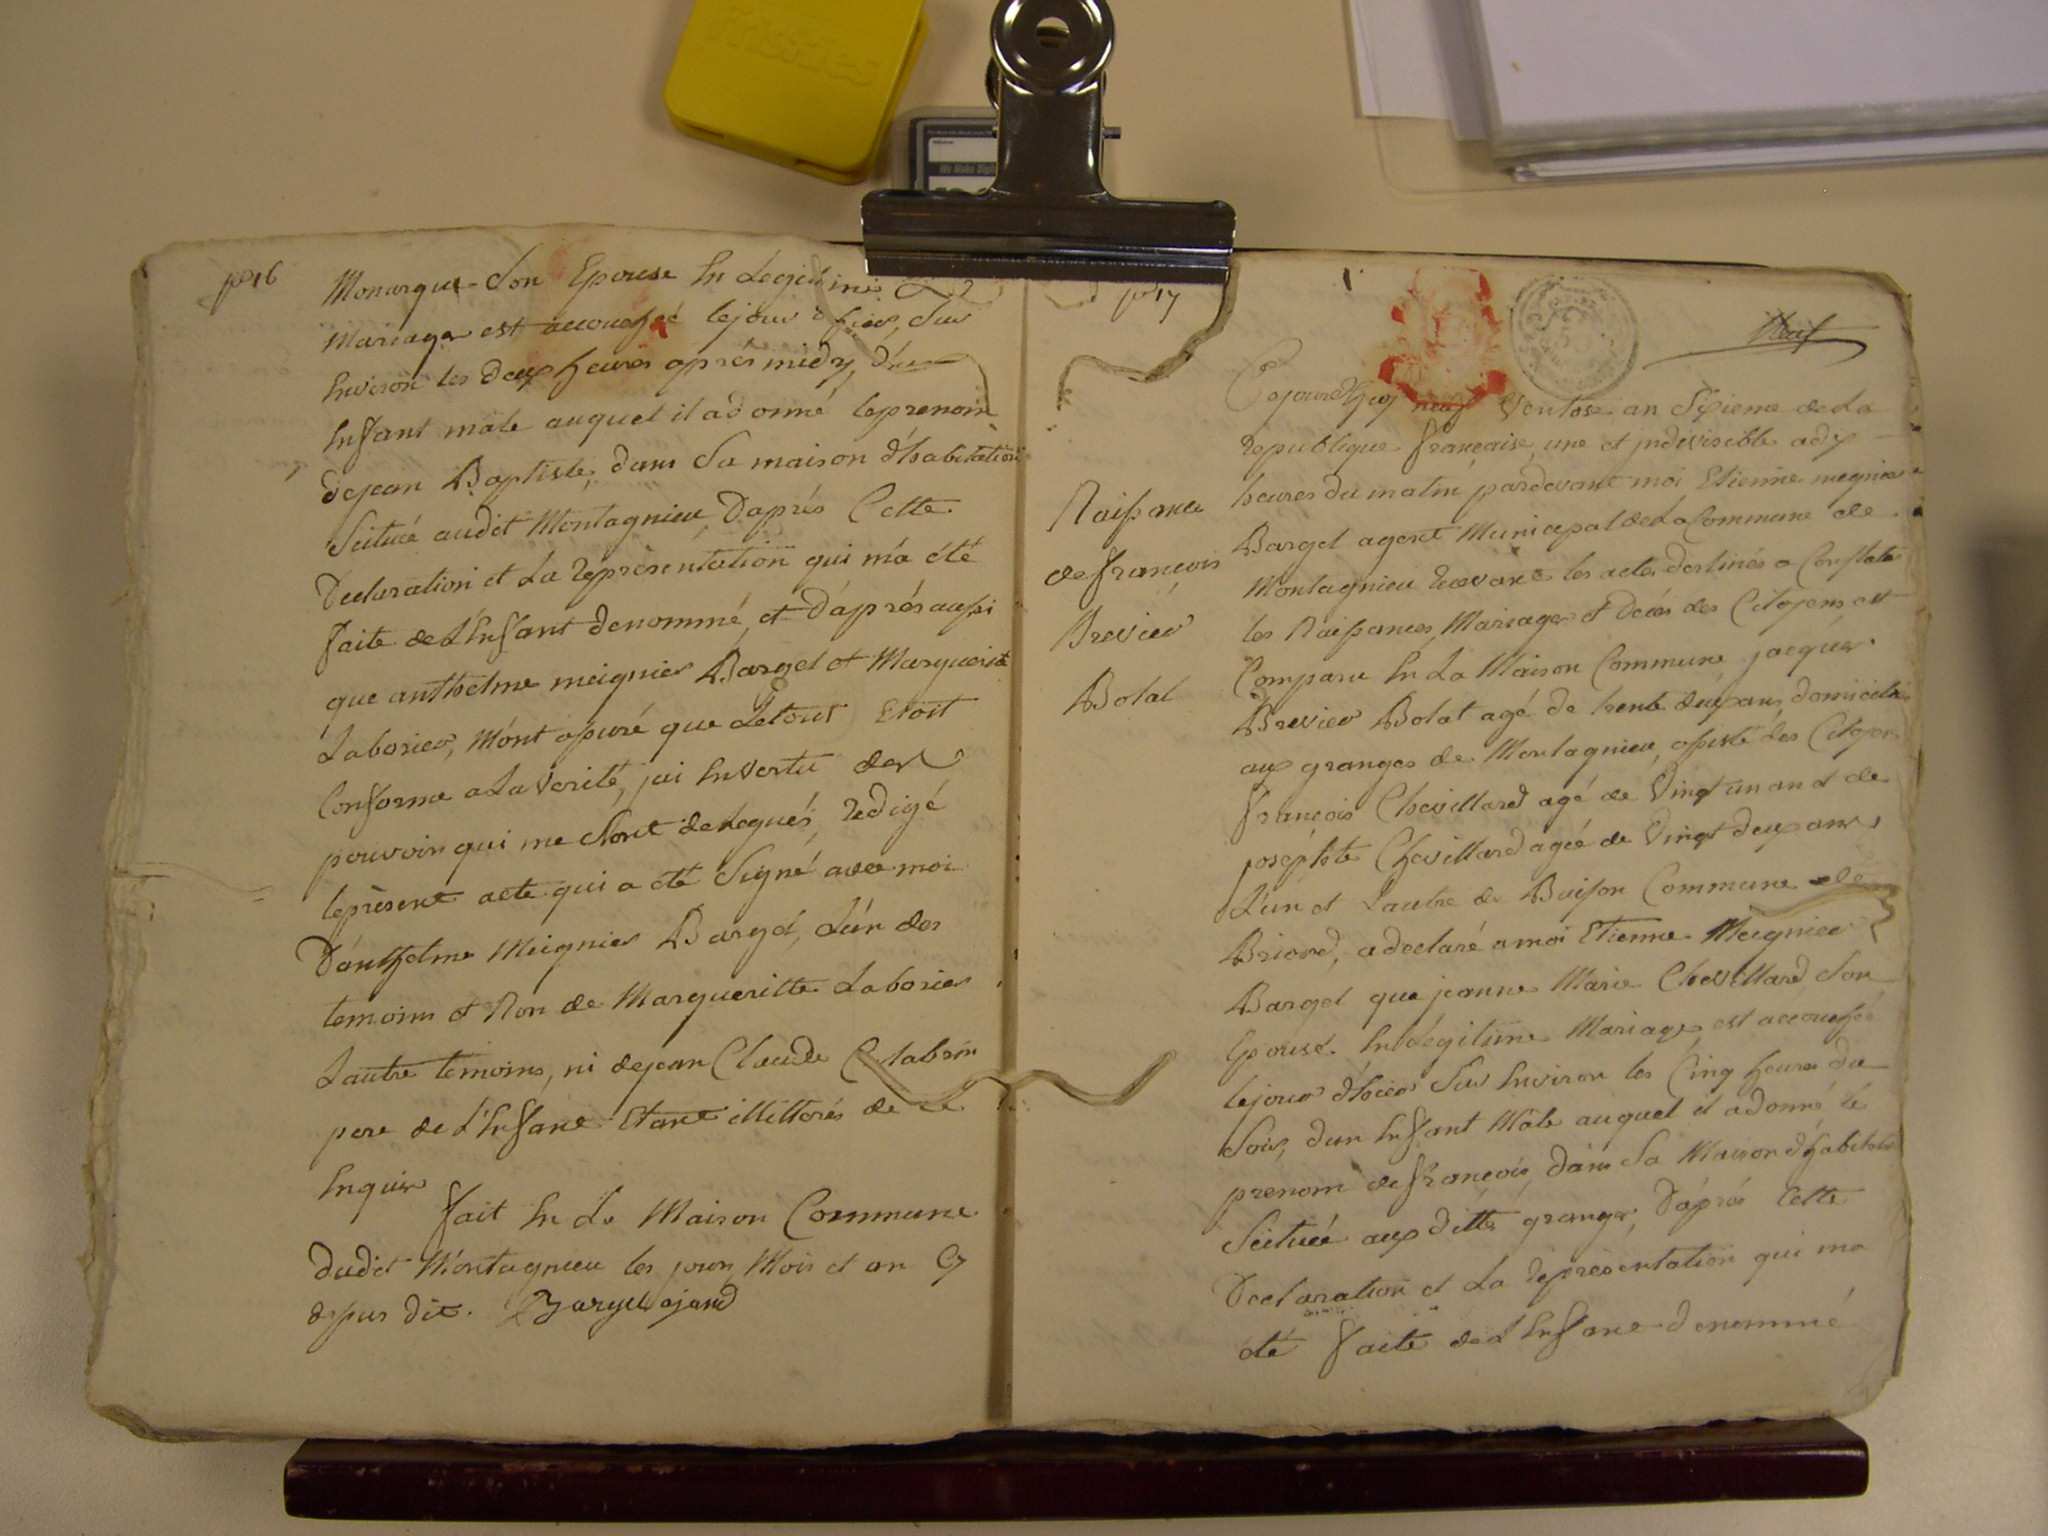 friskies
pe 16
Monarque Son Epouse En Legitime
Mariage est accouchée le jour d'hier, Sur
Environ les deux heures après midy, d'un
Enfant mâle auquel il a donné le prenom
de jean Baptiste, dans Sa maison d'habitation
Scituée audit Montagnieu, D'aprés Cette
Declaration et La representation qui m'a été
faite de L'Enfant denommé, et d'aprés aussi
que anthelme meignier Bargel et Marguerite
Laborier, m'ont assuré que Letout Etoit
Conforme a La Verité, jai En Vertu des
pouvoirs qui me Sont delegués, redigé
leprèsent acte qui a été Signé avec moi
D'anthelme Meignier Bargel, L'ún des
temoins et Non de Margueritte Laborier
L'autre temoins, ni de jean Claude
pere de L'Enfant Etant illitterés de ce
Enquis
fait En La Maison Commune
dudit Montagnieu les jour, Mois et an Cy
depus dit. Bargel ajand
pe 17
Naissance
de françois
Brevier
Bolat
Cejourdhuy neuf Ventose an Sixieme de La
republique française, une et jndivisible a dix
heures du matin pardevant moi Etienne meignier
Bargel agent Municipal de La Commune de
Montagnieu recevant les actes destinés a Constater
les Naissances, Mariages et décès des Citoyens est
Comparu En La Maison Commune jacques
Brevier Bolat agé de trente deux ans, domicilié
aux granges de Montagnieu, assisté des Citoyens
françois Chevillard agé de Vingt un an et de
josephte Chevillard agée de Vingt deux ans,
L'un et L'autre de Buison Commune de
Briord, a declaré a moi Etienne Meignier
Bargel que jeanne Marie Chevillard Son
Epouse En Légitime Mariage, est accouchée
le jour d'hier Sur Environ les Cinq heures du
Soir, d'un Enfant Mâle auquel il a donné le
prenom de françois, dans Sa Maison d'habitation
Scituée aux dittes granges, D'aprés Cette
Declaration et La representation qui m'a
été faite de L'Enfant denommé